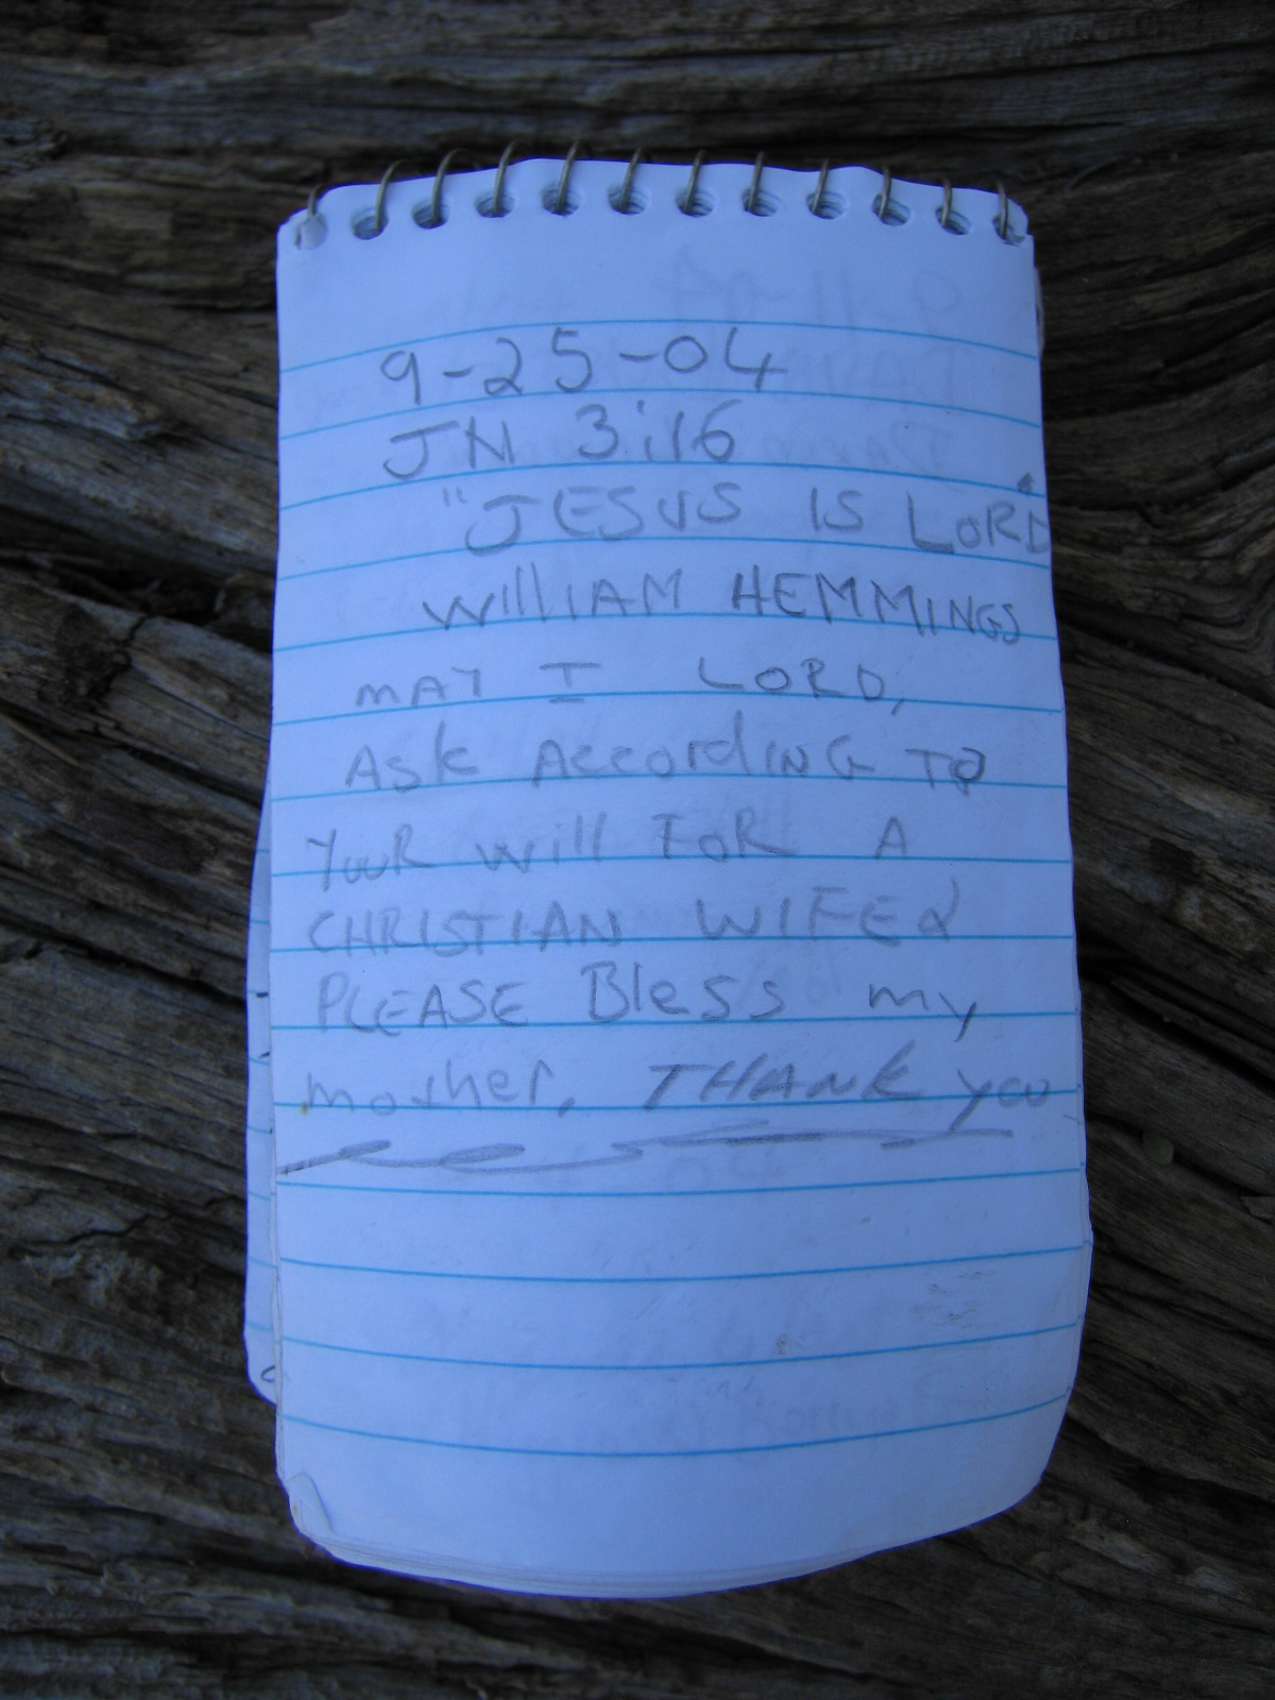 9-25-04
JN 3:16
"JESUS IS LORD
WIllIAM HEMMINGS
MAY I LORD,
Ask According TO
YOUR will FOR A
CHRISTIAN WIFE &
PLEASE Bless my
mother. THANK you